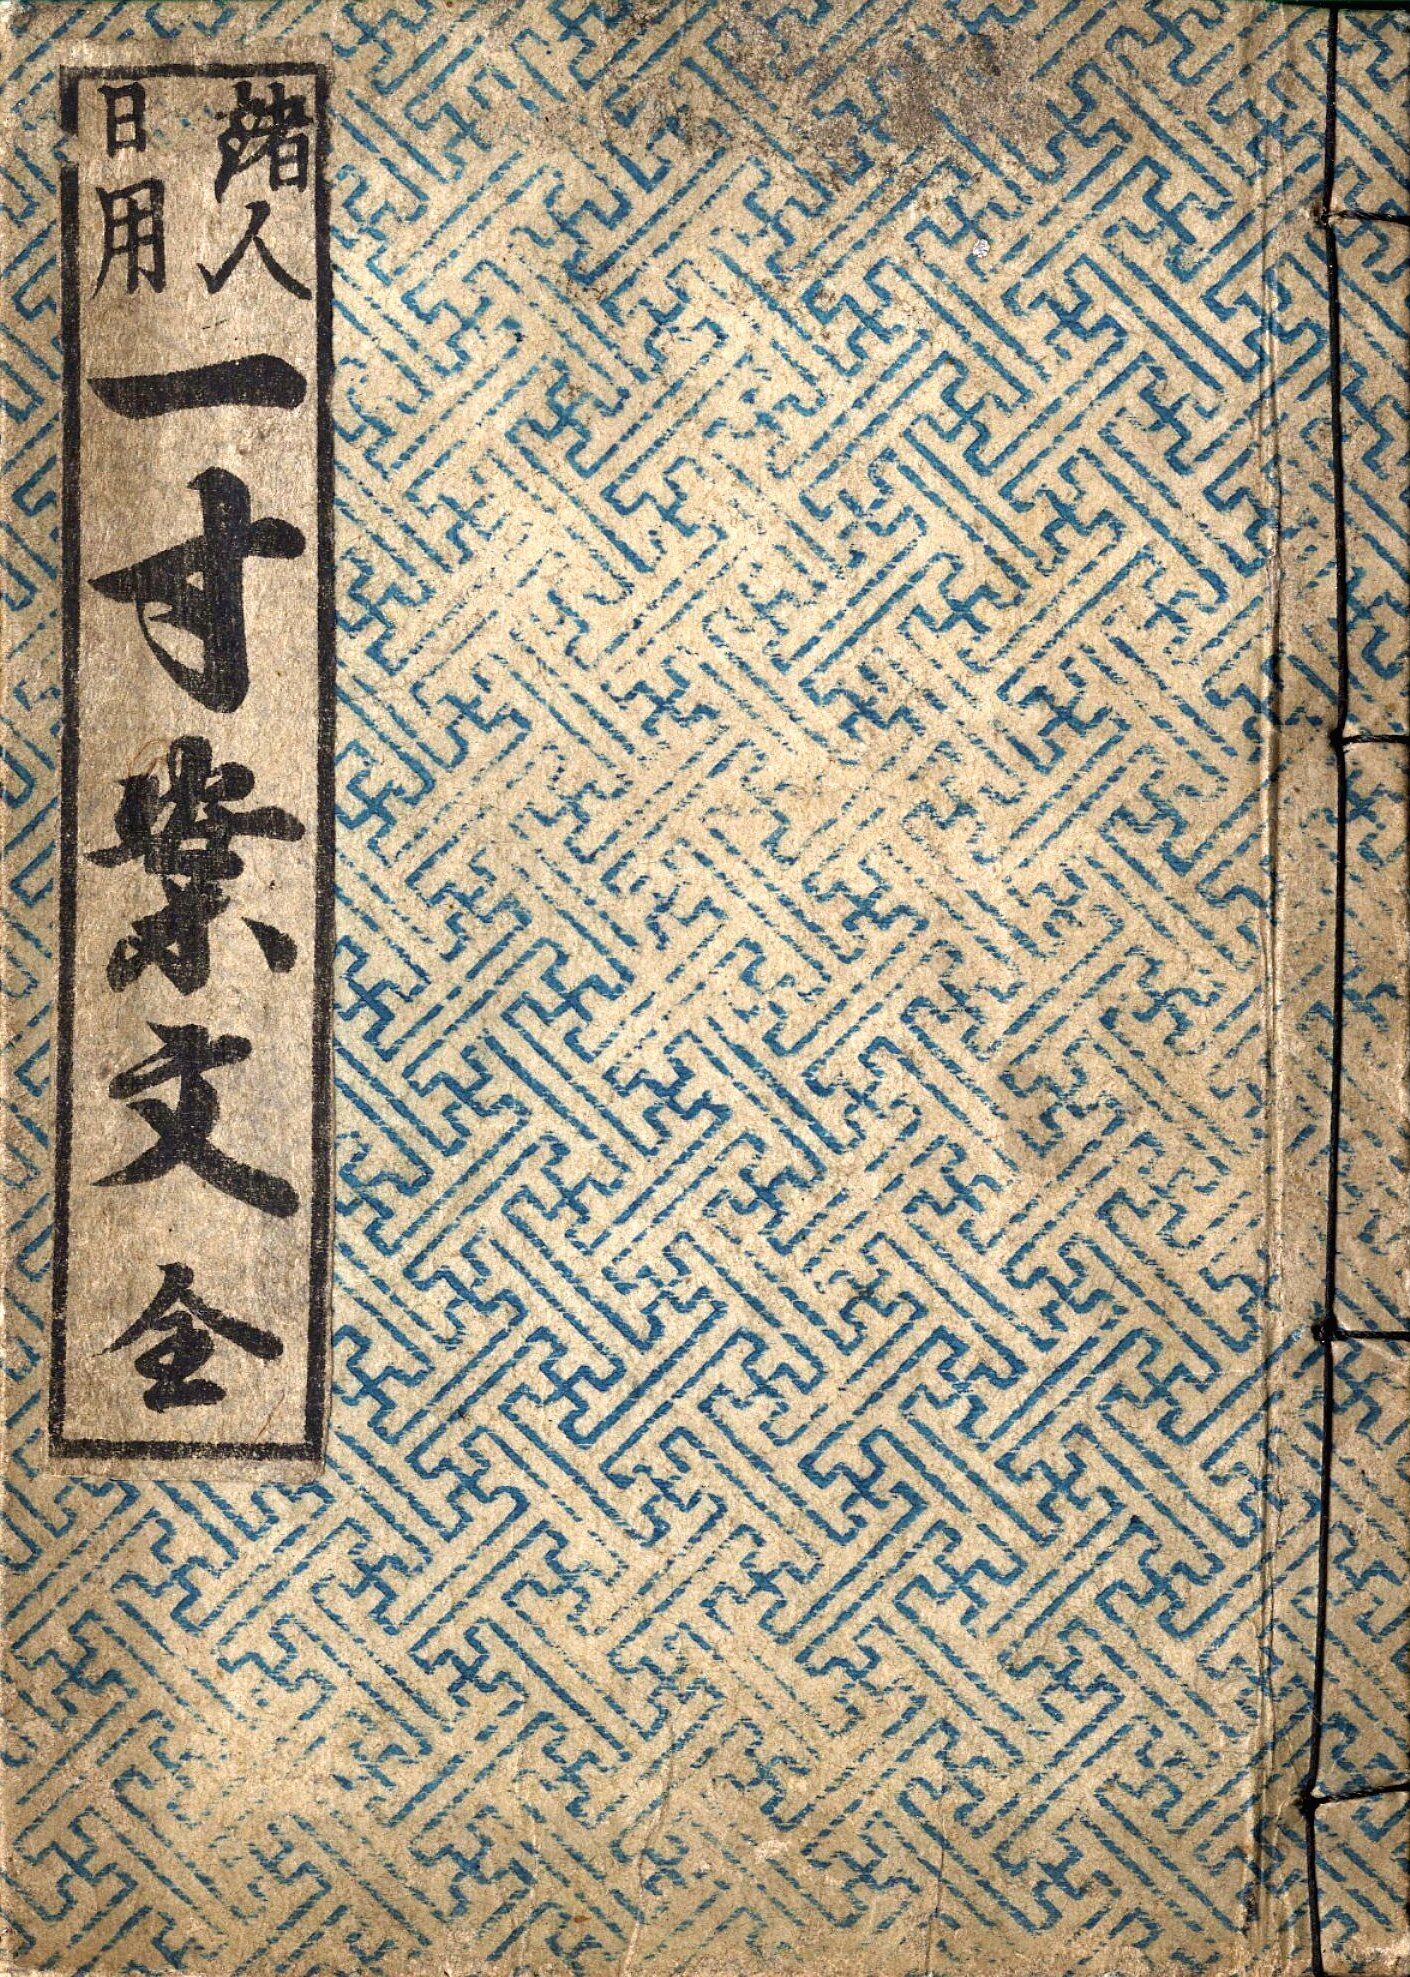 諸人
日用
一寸案文
全